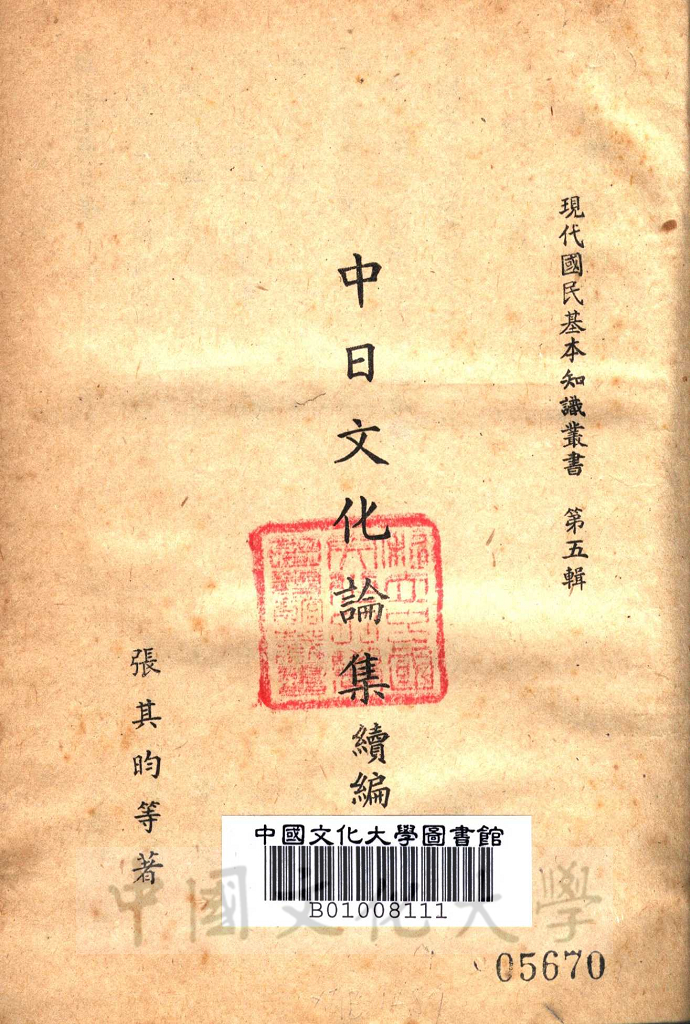 現代國民基本知識叢書 第五輯
中日文化論集續編
張其昀等著
中國文化大學圖書館
B01008111
中國文化大學
05670